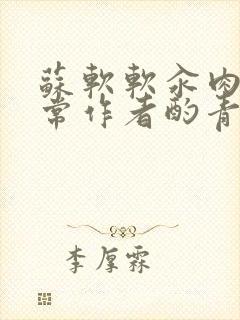 蘇軟軟汆肉
常作者酌青
李厚霖